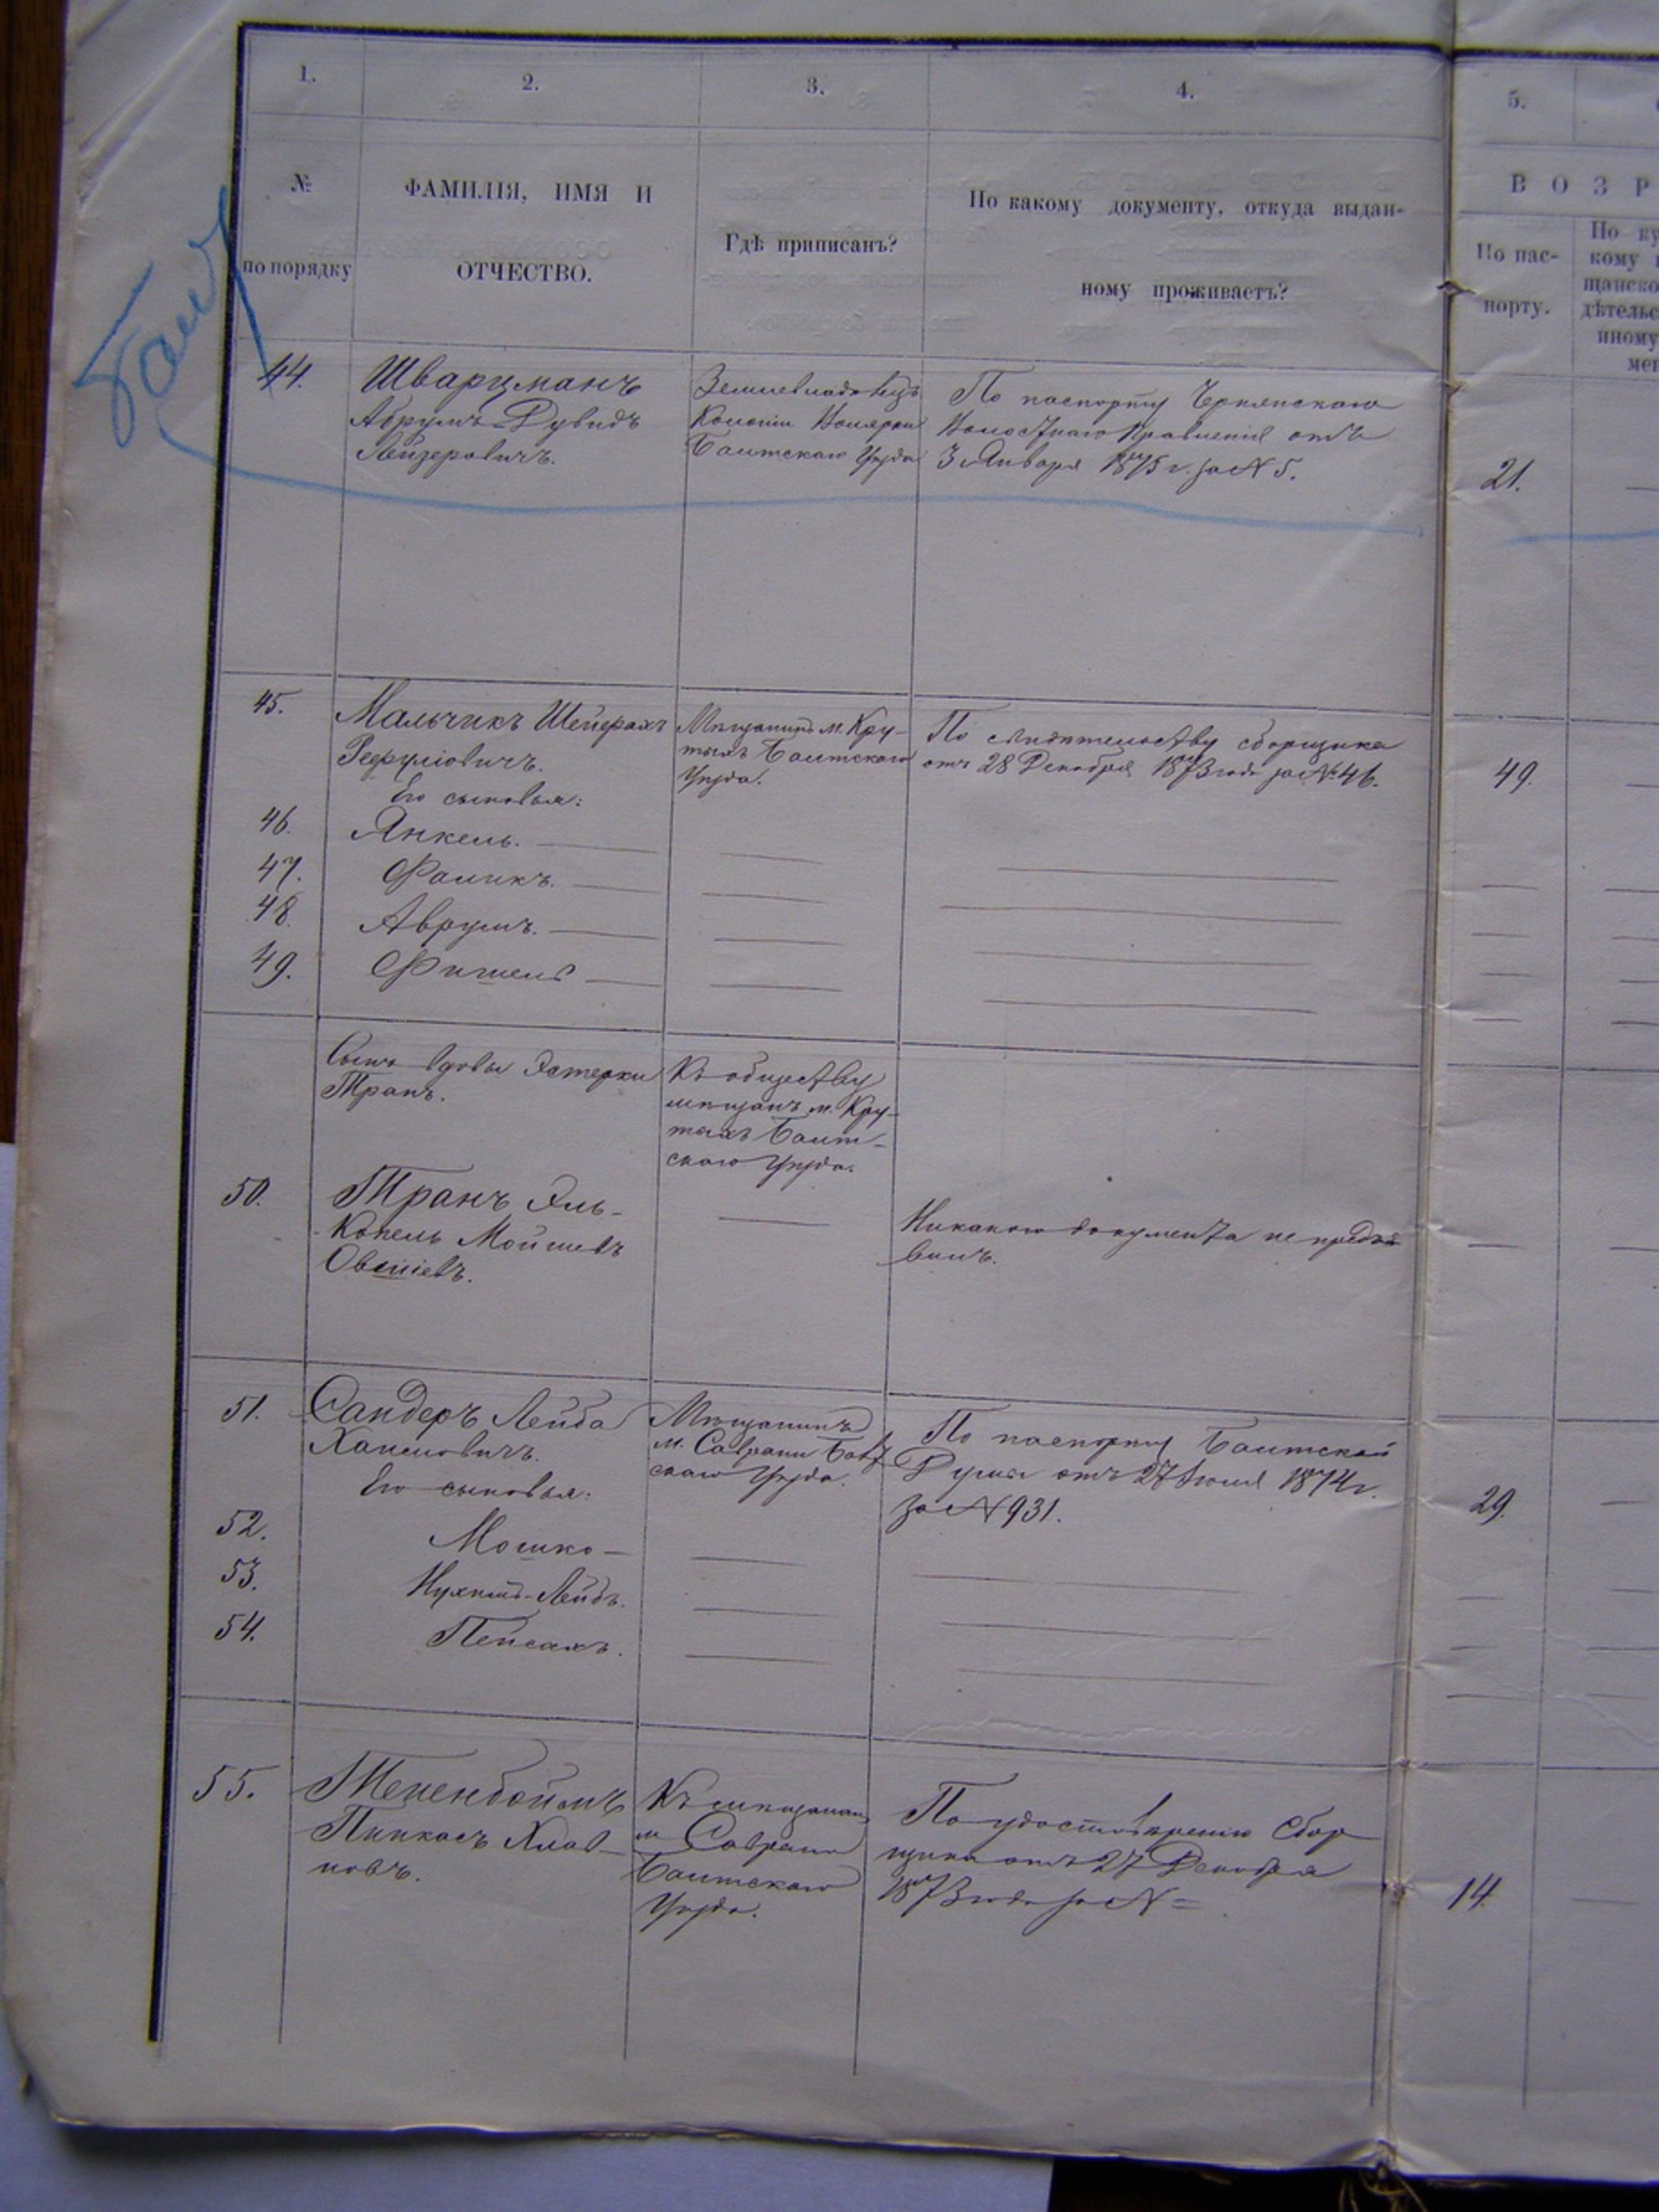 1. 2. 3. 4. 5.
№
по порядку
ФАМИЛІЯ, ИМЯ И
ОТЧЕСТВО.
Гдѣ приписанъ?
По какому документу, откуда выдан-
ному проживаетъ?
ВОЗР
По пас-
порту.
По ку
кому
щанско
дѣтельс
иному
мен
44.
Шварцманъ
Абрумъ-Дувидъ
Лейзеровичъ.
Землевладѣлецъ
Колоніи
Балтскаго Уѣзда
По паспорту
Волостнаго Правленія отъ
3 Января 1875 г. за № 5.
21.
45.
Мальчикъ Шейерахъ
Рефуліовичъ.
Мѣщанинъ м. Кру-
тыхъ Балтскаго
Уѣзда.
По свидѣтельству сборщика
отъ 28 Декабря 1873 года за № 46.
49.
Его сыновья:
46. Янкель.
47. Фаликъ.
48. Аврумъ.
49. Фишель
Сынъ вдовы Эстерки
Транъ.
Къ обществу
мѣщанъ м. Кру-
тыхъ Балт-
скаго Уѣзда.
50.
Транъ Эль-
Копель Мойшевъ
Овшіевъ.
Никакого документа не предъя
вилъ.
51.
Сандеръ Лейба
Хаимовичъ.
Мѣщанинъ
м. Саврани Балт
скаго Уѣзда.
По паспорту Балтской
Думы отъ 27 Іюля 1874 г.
за № 931.
29.
Его сыновья:
52. Мошко
53. Нухимъ-Лейбъ.
54. Пейсахъ.
55.
Тененбоймъ
Пинкасъ
новъ.
Къ мѣщанамъ
м. Саврани
Балтскаго
Уѣзда.
По удостовѣренію Сбор
щика отъ 27 Декабря
1873 года за № =
14.